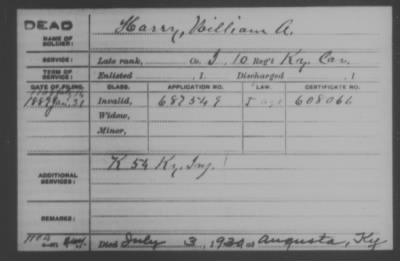 DEAD
NAME OF SOLDIER: Harry, William A.
SERVICE: Late rank, Co. I, 10 Reg't Ky. Cav.
TERM OF SERVICE: Enlisted , 1 Discharged , 1
DATE OF FILING. CLASS. APPLICATION NO. LAW. CERTIFICATE NO.
1889 Jan. 31 Invalid, 687549 608066
Widow,
Minor,
ADDITIONAL SERVICES: K 54 Ky. Inf.
REMARKS:
Died July 3, 19 at Augusta, Ky